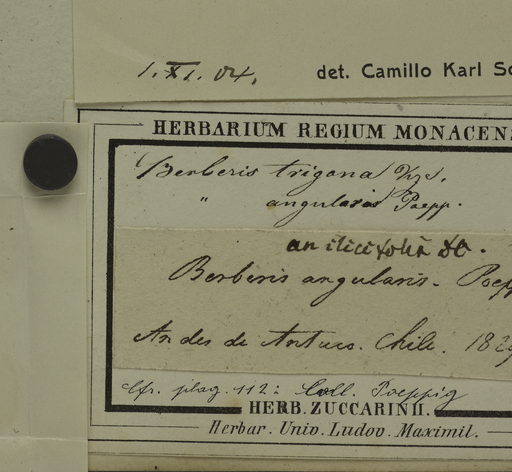 1. XI. 04. det. Camillo Karl Sc
HERBARIUM REGIUM MONACENS
Berberis trigona
" angularis Poepp.
an ilicifolia DC.
Berberis angularis. Poepp
Andes de Antuco. Chile. 1829
Cfr. plag. 112: Coll. Poeppig
HERB. ZUCCARINII.
Herbar. Univ. Ludov. Maximil.